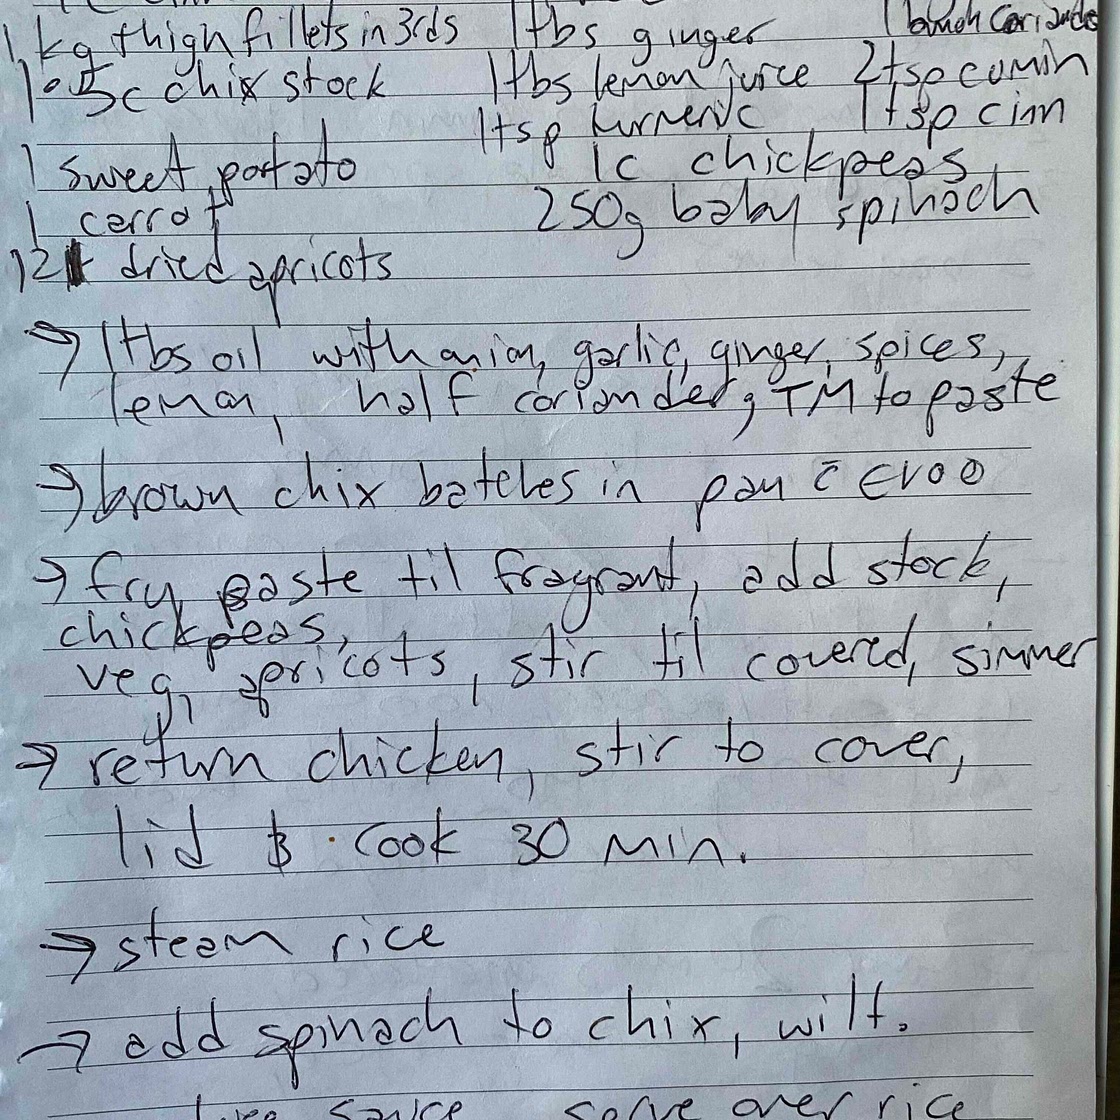 1kg thigh fillets in 3rds 1tbs ginger 1 bunch coriander
1.5c chix stock 1tbs lemon juice 2tsp cumin
1tsp turmeric 1tsp cinn
1 sweet potato 1c chickpeas
1 carrot 250g baby spinach
12 dried apricots
→ 1tbs oil with onion, garlic, ginger, spices,
lemon, half coriander, TM to paste
→ brown chix batches in pan c̄ EVOO
→ fry paste til fragrant, add stock,
chickpeas,
veg, apricots, stir til covered, simmer
→ return chicken, stir to cover,
lid & cook 30 min.
→ steam rice
→ add spinach to chix, wilt.
sauce serve over rice